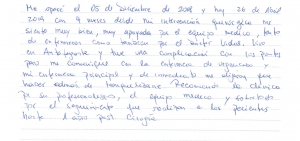 Me operé el 05 de Diciembre de 2018 y hoy 26 de Abril
2019 con 4 meses desde mi intervención quirúrgica me
siento muy bien, muy apoyada por el equipo médico, tanto
de enfermeras como doctor Vidal. Vivo
en Antofagasta y tuve una complicación con un punto
pero me comuniqué con la enfermera de urgencia y
mi enfermera principal y de inmediato me dijeron que
hacer además de tranquilizarme. Recomiendo la clínica
por su profesionalismo, el equipo médico y sobretodo
por el seguimiento que realizan a los pacientes
hasta 1 año post cirugía